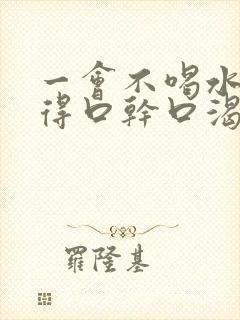 一會不喝水
得口幹口渴
羅隆基